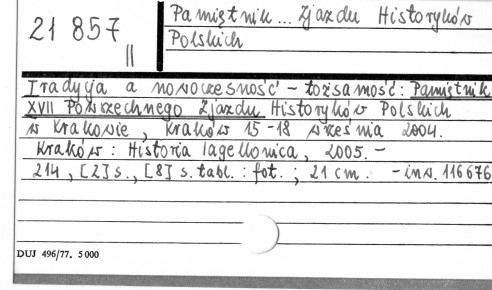 21 857
II
Pamiętnik... Zjazdu Historyków
Polskich
Tradycja a nowoczesność - tożsamość: Pamiętnik
XVII Powszechnego Zjazdu Historyków Polskich
w Krakowie, Kraków 15-18 września 2004.
Kraków: Historia Iagellonica, 2005. -
214, [2] s., [8] s. tabl. : fot. ; 21 cm. - inw. 116676
DUJ 496/77. 5000